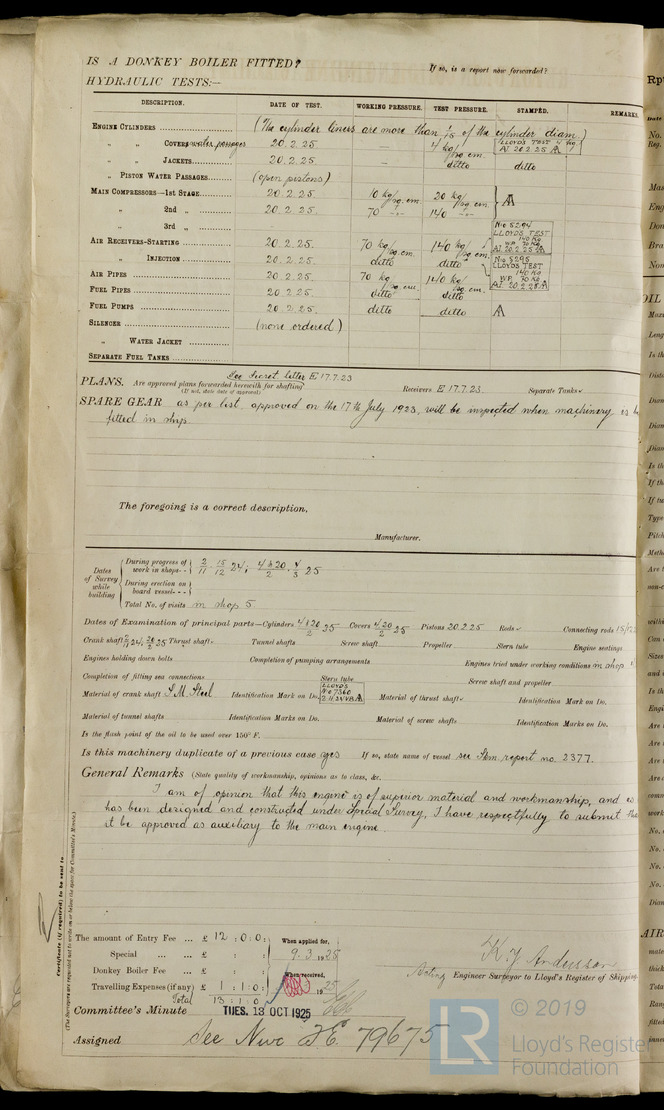 IS A DONKEY BOILER FITTED?
If so, is a report now forwarded?
HYDRAULIC TESTS:—
DESCRIPTION. DATE OF TEST. WORKING PRESSURE. TEST PRESSURE. STAMPED. REMARKS
ENGINE CYLINDERS (The cylinder liners are more than 1/15 of the cylinder diam.)
„ „ COVERS water passages 20.2.25 4 kg/sq.cm. LLOYD'S TEST 4 Kg AI. 20.2.25
„ „ JACKETS 20.2.25 – ditto ditto
„ PISTON WATER PASSAGES (open pistons)
MAIN COMPRESSORS—1st STAGE 20.2.25 10 kg/sq.cm. 20 kg/sq.cm.
„ 2nd „ 20.2.25 70 140
„ 3rd „
No 5294 LLOYDS TEST 140 KG W.P. 70 KG A.I. 20.2.25
AIR RECEIVERS-STARTING 20.2.25 70 kg/sq.cm. 140 kg/sq.cm.
„ INJECTION 20.2.25 ditto ditto No 5295 LLOYDS TEST 140 KG W.P. 70 KG A.I. 20.2.25
AIR PIPES 20.2.25 70 kg/sq.cm. 140 kg/sq.cm.
FUEL PIPES 20.2.25 ditto ditto
FUEL PUMPS 20.2.25. ditto ditto
SILENCER (none ordered)
„ WATER JACKET
SEPARATE FUEL TANKS
See Secret. letter E 17.7.23
PLANS. Are approved plans forwarded herewith for shafting Receivers E 17.7.23 Separate Tanks
(If not, state date of approval)
SPARE GEAR as per list, approved on the 17th July 1923, will be inspected when machinery is
fitted in ship.
The foregoing is a correct description,
Manufacturer.
Dates of Survey while building
During progress of work in shops - - 2/11 15/12 24; 4 & 20/2 4/3 25
During erection on board vessel - - -
Total No. of visits in shop 5
Dates of Examination of principal parts—Cylinders 4 & 20/2 25 Covers 4/20/2 25 Pistons 20.2.25 Rods Connecting rods
Crank shaft Thrust shaft Tunnel shafts Screw shaft Propeller Stern tube Engine seatings
Engines holding down bolts Completion of pumping arrangements Engines tried under working conditions in shop
Completion of fitting sea connections Stern tube Screw shaft and propeller
Material of crank shaft S.M. Steel Identification Mark on Do. LLOYDS No 7360 Material of thrust shaft Identification Mark on Do.
Material of tunnel shafts Identification Marks on Do. Material of screw shafts Identification Marks on Do.
Is the flash point of the oil to be used over 150° F.
Is this machinery duplicate of a previous case yes If so, state name of vessel see Hem report no. 2377.
General Remarks (State quality of workmanship, opinions as to class, &c.
I am of opinion that this engine is of superior material and workmanship, and as
has been designed and constructed under Special Survey, I have respectfully to submit
it be approved as auxiliary to the main engine.
Certificate (if required) to be sent to
(The Surveyors are requested not to write on or below the space for Committee's Minute.)
The amount of Entry Fee ... £ 12 : 0 : 0 : When applied for,
Special ... ... £ : : 9.3.1925
Donkey Boiler Fee ... £ : : When received,
Travelling Expenses (if any) £ 1 : 1 : 0 : 1925
Total 13 : 1 : 0
Acting Engineer Surveyor to Lloyd's Register of Shipping
Committee's Minute TUES. 13 OCT 1925
Assigned See Nwc J.E. 79675
LR © 2019
Lloyd's Register
Foundation